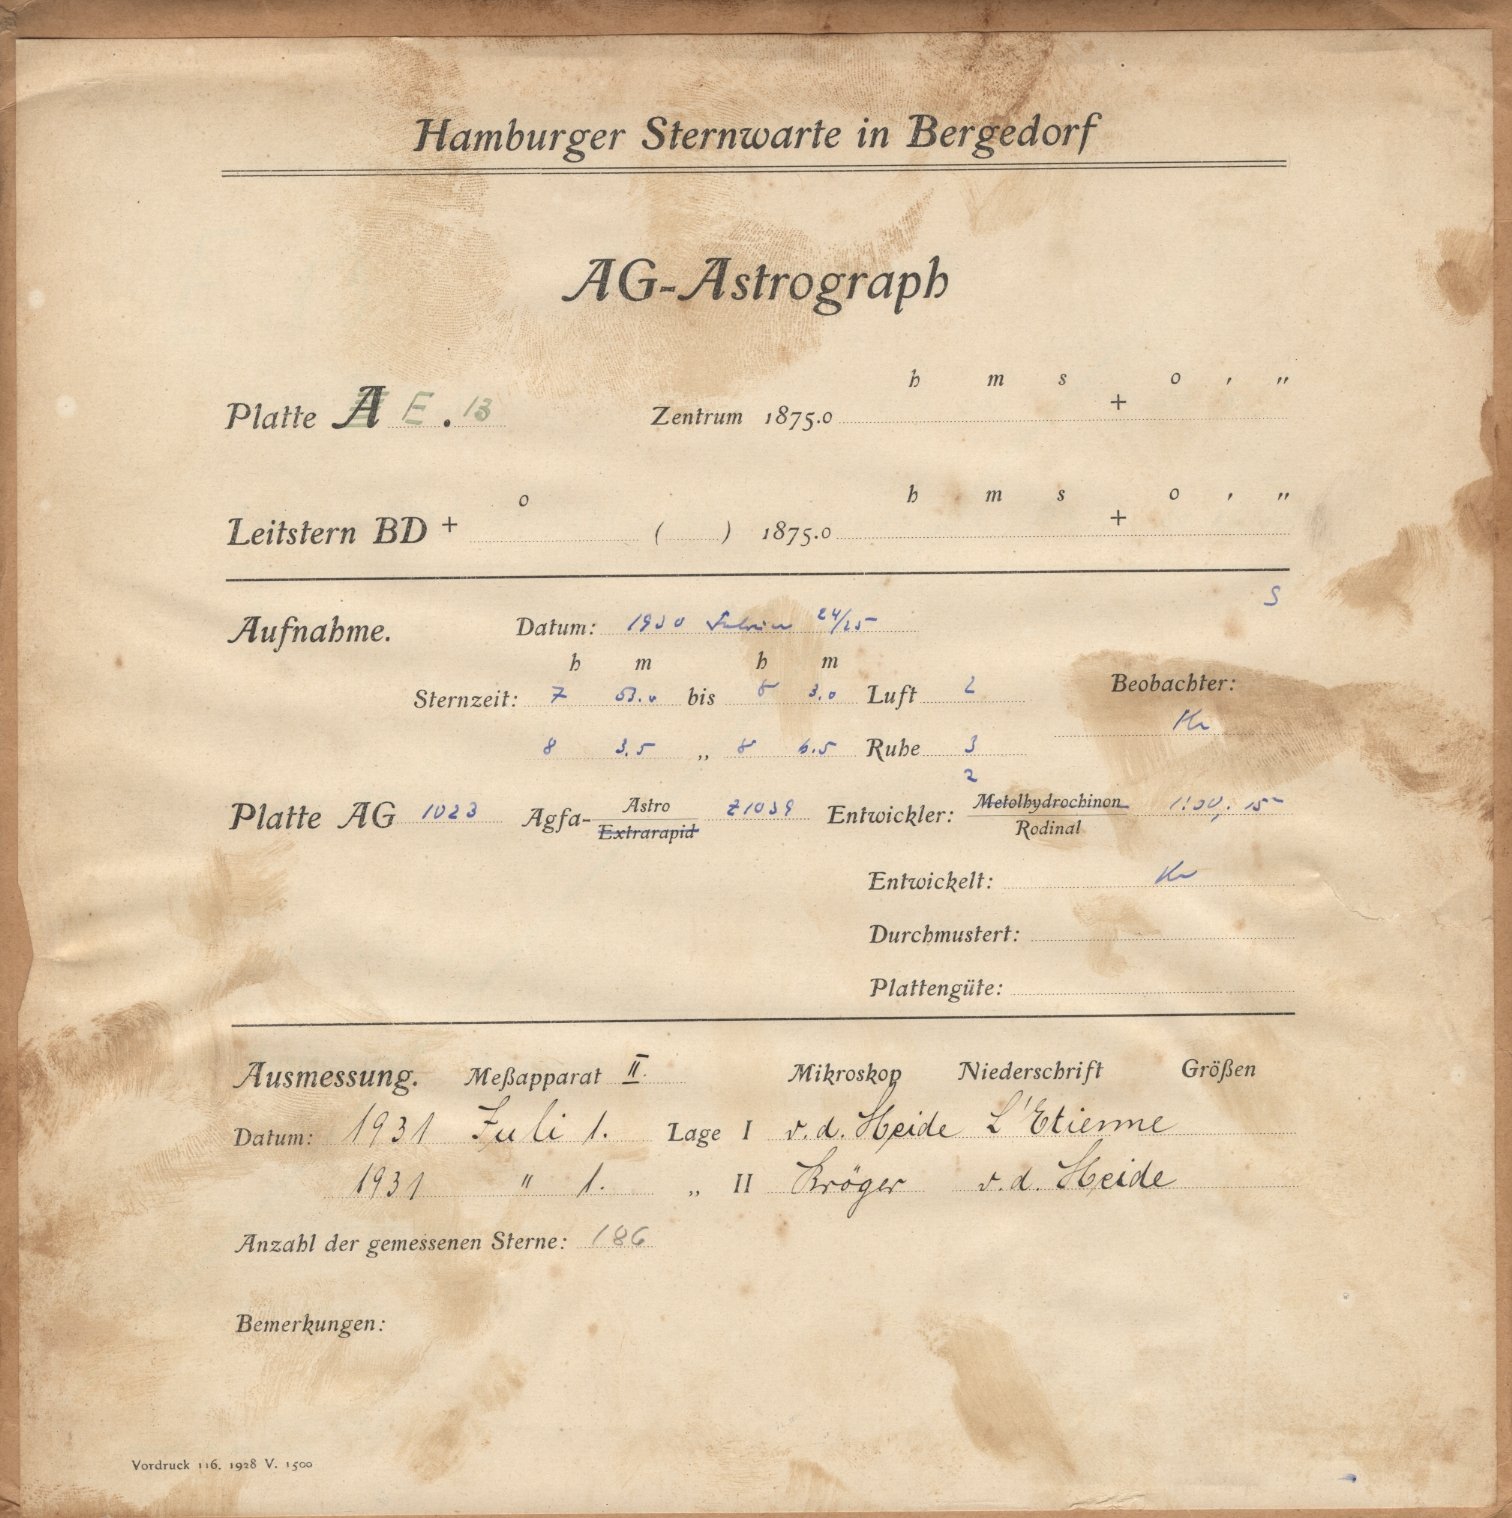 Hamburger Sternwarte in Bergedorf
AG-Astrograph
h m s o ′ ″
Platte A E . 13 Zentrum 1875.0 +
o h m s o ′ ″
Leitstern BD + ( ) 1875.0 +
S
Aufnahme. Datum: 1930 24/25
h m h m
Sternzeit: 7 53.0 bis 8 3.0 Luft 2 Beobachter:
Kr
8 3.5 „ 8 6.5 Ruhe 3
2
Platte AG 1023 Agfa- Astro Extrarapid Z1039 Entwickler: Metolhydrochinon Rodinal 1:30, 15
Entwickelt: Kr
Durchmustert:
Plattengüte:
Ausmessung. Meßapparat II. Mikroskop Niederschrift Größen
Datum: 1931 Juli 1. Lage I v. d. Heide L'Etienne
1931 " 1. „ II Kröger v. d. Heide
Anzahl der gemessenen Sterne: 186
Bemerkungen:
Vordruck 116. 1928 V. 1500